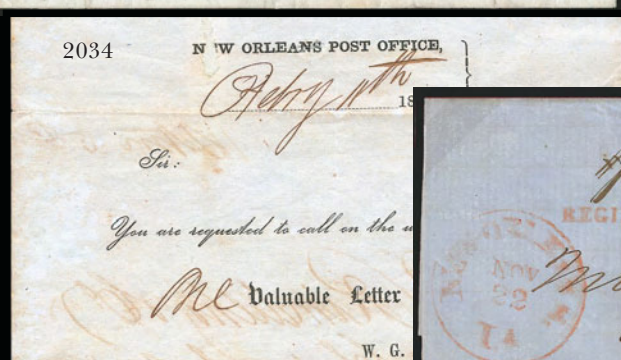 2034
N W ORLEANS POST OFFICE,
Feby 11th 18
Sir:
You are requested to call on the u
One Valuable Letter
W. G.
REGI
NOV
22
LA